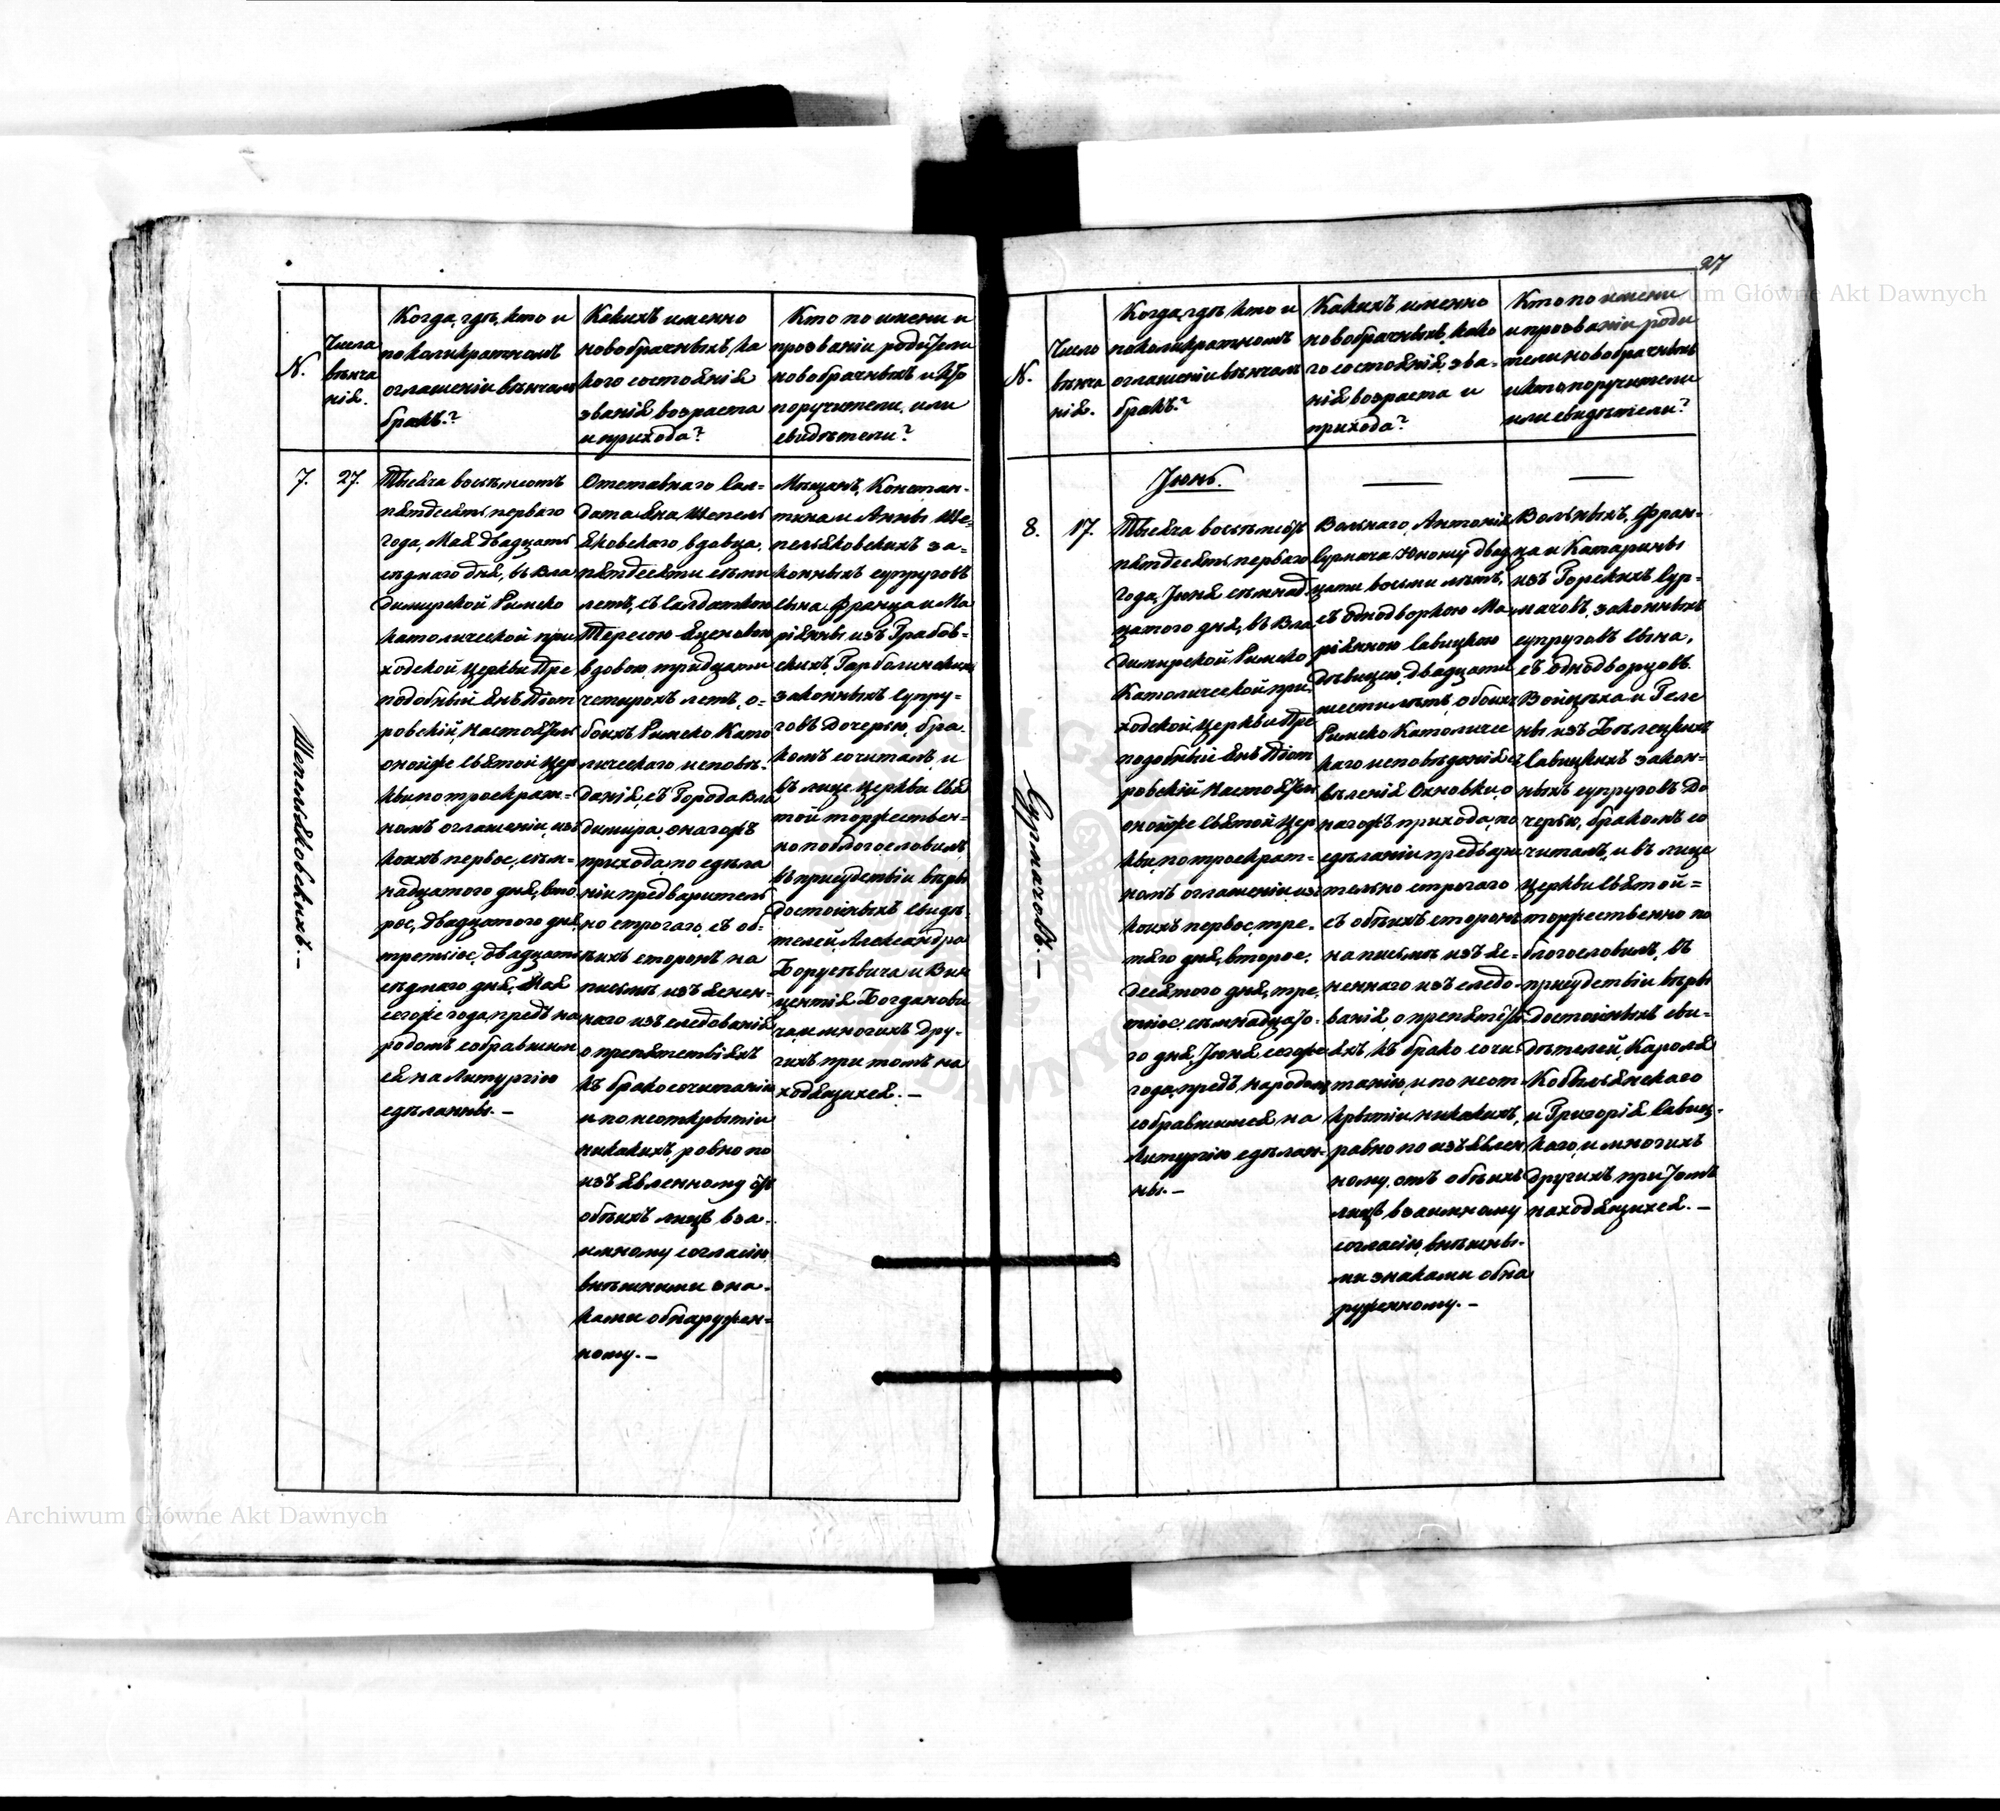 27
Archiwum Główne Akt Dawnych
N.
Числа
вѣнча
нія.
Когда, гдѣ, кто и
поколикратномъ
оглашеніи вѣнчалъ
бракъ?
Какихъ именно
новобрачныхъ, ка
кого состоянія
званія возраста
и прихода?
Кто по имени и
прозваніи родители
новобрачныхъ и кто
поручители, или
свидѣтели?
7.
27.
Шепеляковскихъ. –
Тысяча восемьсотъ
пятдесятъ перваго
года, Мая двадцать
седмаго дня, въ Вла
димирской Римско
католической при
ходской церкви Пре
подобный Янъ Піот
ровскій, Настоятель
онойже Святой Цер
кви по троекрат=
номъ оглашеніи, изъ
коихъ первое, сѣм=
надцатого дня, вто
рое, двадцатого дня,
третіое, двадцать
седмаго дня, Мая
сегоже года, предъ на
родомъ собравшим
ся на Литургію
сдѣланны. –
Отставнаго Сол=
дата Яна Шепеля
яковскаго, вдовца,
пятдесяти семи
летъ, съ Солдаткою
Тересою Яценовою
вдовою, тридцати
четирохъ летъ, о=
боихъ Римско Като
лическаго исповѣ=
данія, съ Города Вла
димира, онагожъ
прихода, по сдѣла
ніи предваритель
но строгаго, съ об=
ѣихъ сторонъ на
письмѣ изъяснен=
наго изъслѣдованія
о препятствіяхъ
къ бракосочитанію
и по неоткрытіи
никакихъ, ровно по
изъявленному отъ
обѣихъ лицъ вза=
имному согласію,
внѣшними зна=
ками обнаружен=
ному. –
Мѣщанъ, Констан=
тина и Анны Ше=
пеляковскихъ за=
конныхъ супруговъ
сына, Франца и Ма
ріянны изъ Грабов=
скихъ, Гарболинскихъ
законныхъ супру=
говъ дочерью, бра=
комъ сочиталъ, и
въ лице Церкви Свя
той торжествен=
но поблогословилъ,
въ присудствіи вѣры
достойныхъ свидѣ
телей, Александра
Борусѣвича и Вин
центія Богданови
ча, и многихъ дру=
гихъ при томъ на
ходящихся. –
N.
Число
вѣнча
нія.
Когда, гдѣ, кто и
поколикратномъ
оглашеніи вѣнчалъ
бракъ?
Какихъ именно
новобрачныхъ, како
го состоянія, зва=
нія возраста и
прихода?
Кто по имени
и прозваніи роди
тели новобрачныхъ
и кто поручители
или свидѣтели?
Іюнь.
8.
17.
Сурмачовъ. –
Тысяча восемьсотъ
пятдесятъ перваго
года, Іюня сѣмнад
цатого дня, въ Вла
димирской Римско
Католической при
ходской Церкви Пре
подобный Янъ Піот
ровскій Настоятель
онойже Святой Цер
кви, по троекрат=
номъ оглашеніи, изъ
коихъ первое, тре=
тяго дня, второе,
десятого дня, тре
тіое, сѣмнадцато=
го дня, Іюня сегоже
года, предъ народомъ
собравшимся на
Литургію сдѣлан=
ны. –
Вольнаго, Антонія
Сурмача Юношу двад
цати восьми лѣтъ,
съ Однодворкою Ма
ріянною Савицкою
дѣвицею, двадцати
шести лѣтъ, обоихъ
Римско Католичес
каго исповѣданія съ
селенія Охновки, о
нагожъ прихода, по
сдѣланіи предвари
тельно строгаго
съ обѣихъ сторонъ
на письмѣ изъяс=
неннаго изъслѣдо=
ванія, о препятстві
яхъ къ бракосочи
танію, и по неот
крытіи никакихъ,
равно по изъявлен
ному, отъ обѣихъ
лицъ взаимному
согласію, внѣшны=
ми знаками обна
руженному. –
Вольныхъ, Фран=
ца и Катарины
изъ Горскихъ Сур=
мачовъ, законныхъ
супруговъ сына,
съ Однодворцовъ
Войцѣха и Геле
ны изъ Бѣлецкихъ
Савицкихъ закон=
ныхъ супруговъ до
черью, бракомъ со
читалъ, и въ лице
Церкви Святой=
торжественно по
благословилъ, въ
присудствіи вѣры
достойныхъ сви=
дѣтелей, Кароля
Кобылянскаго
и Григорія Савиц=
каго, и многихъ
другихъ при томъ
находящихся. –
Archiwum Główne Akt Dawnych